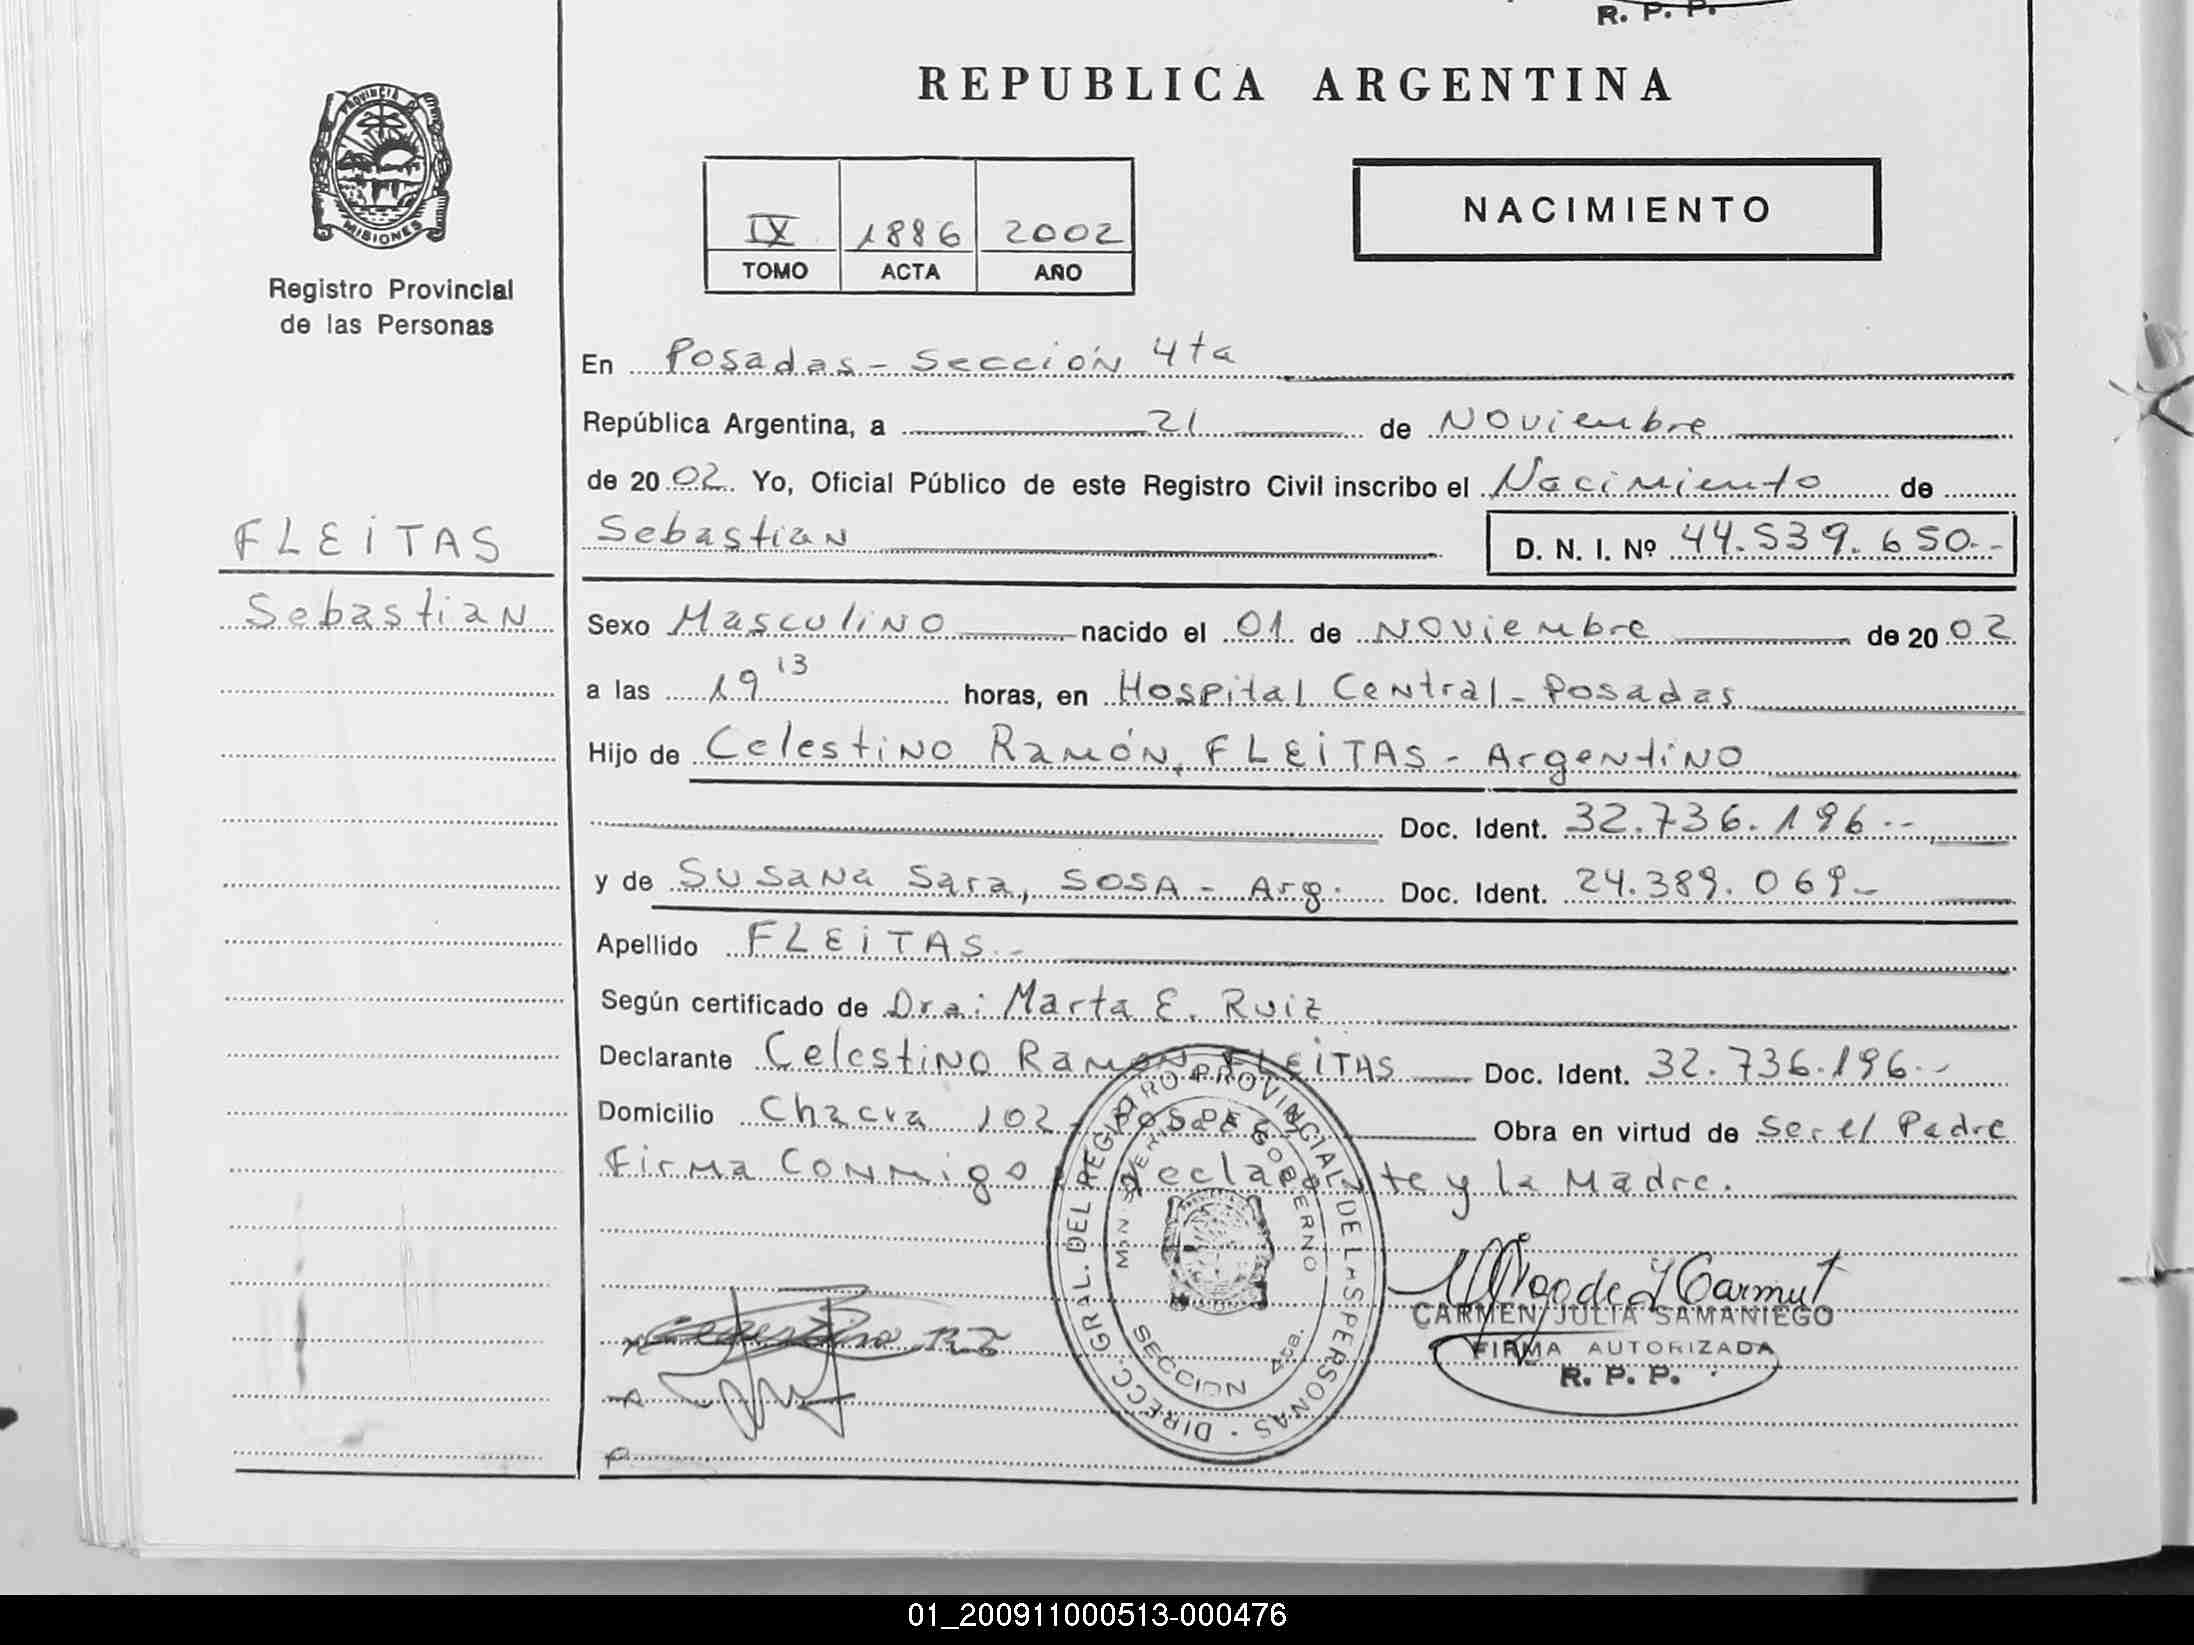 R. P. P.
REPUBLICA ARGENTINA
PROVINCIA
MISIONES
Registro Provincial
de las Personas
IX 1886 2002
TOMO ACTA AÑO
NACIMIENTO
En Posadas - Sección 4ta
República Argentina, a 21 de Noviembre
de 2002. Yo, Oficial Público de este Registro Civil inscribo el Nacimiento de
FLEITAS
Sebastian
Sebastian D. N. I. Nº 44.539.650.-
Sexo Masculino nacido el 01 de Noviembre de 2002
a las 19 13 horas, en Hospital Central - Posadas
Hijo de Celestino Ramón, FLEITAS - Argentino
Doc. Ident. 32.736.196.-
y de Susana Sara, SOSA - Arg. Doc. Ident. 24.389.069-
Apellido FLEITAS.-
Según certificado de Dra: Marta E. Ruiz
Declarante Celestino Ramon FLEITAS Doc. Ident. 32.736.196.-
Domicilio Chacra 102 - Posadas Obra en virtud de Ser el Padre
Firma Conmigo Declarante y la Madre.
DIRECC. GRAL. DEL REGISTRO PROVINCIAL DE LAS PERSONAS
GOBIERNO
SECCION 4ta.
CARMEN JULIA SAMANIEGO
FIRMA AUTORIZADA
R. P. P.
01_200911000513-000476